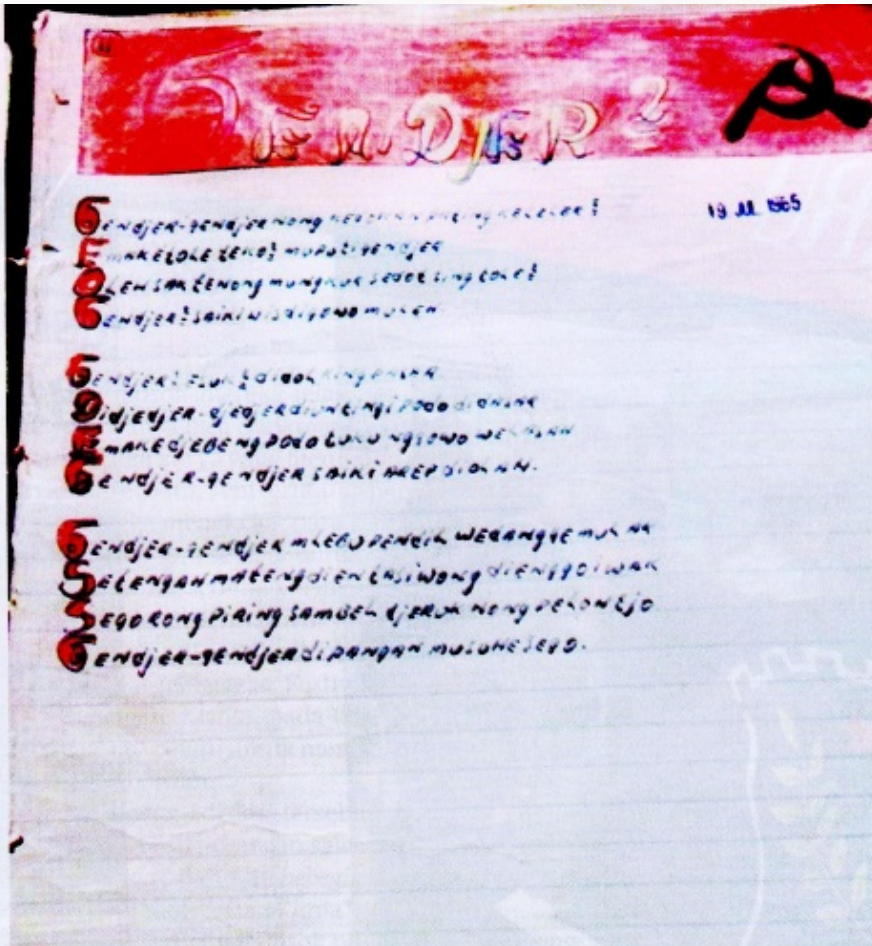 GENDJER 2
19
GENDJER-GENDJER NONG KEDOKAN PATING KELELER
EMAKE TOLE TEKO2 MUPUTI GENDJER
OLEH SAK TENONG MUNGKUR SEDOT SING TOLE2
GENDJER2 SAIKI WIS DIGOWO MULEH
GENDJER2 ESUK2 DIDOL RING PASAR
DIDJEDJER-DJEDJER DIUNTINGI PODO DIDASAR
EMAKE DJEBENG PODO TUKU NGGOWO
GENDJER-GENDJER SAIKI AREP DIOLAH.
GENDJER-GENDJER MLEBU PENDIL WEDANG GEMULAK
SETENGAH MATENG DIENTASI WONG DIENGGO IWAK
SEGO RONG PIRING SAMBEL DJERUK NONG PELONTJO
GENDJER-GENDJER DIPANGAN MUSUHE SEGO.